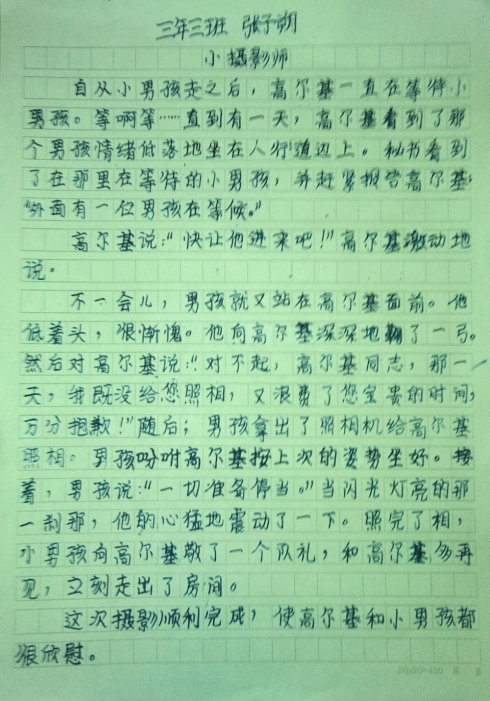 三年三班 张子朔
小摄影师
自从小男孩走之后，高尔基一直在等待小
男孩。等啊等……直到有一天，高尔基看到了那
个男孩情绪低落地坐在人行道边上。秘书看到
了在那里在等待的小男孩，并赶紧报告高尔基：
“外面有一位男孩在等候。”
高尔基说：“快让他进来吧！”高尔基激动地
说。
不一会儿，男孩就又站在高尔基面前。他
低着头，很惭愧。他向高尔基深深地鞠了一弓。
然后对高尔基说：“对不起，高尔基同志，那一
天，我既没给您照相，又浪费了您宝贵的时间，
万分抱歉！”随后；男孩拿出了照相机给高尔基
照相。男孩吩咐高尔基按上次的姿势坐好。接
着，男孩说：“一切准备停当。”当闪光灯亮的那
一刹那，他的心猛地震动了一下。照完了相，
小男孩向高尔基敬了一个队礼，和高尔基匆再
见，立刻走出了房间。
这次摄影顺利完成，使高尔基和小男孩都
很欣慰。
20x20=400 第 页